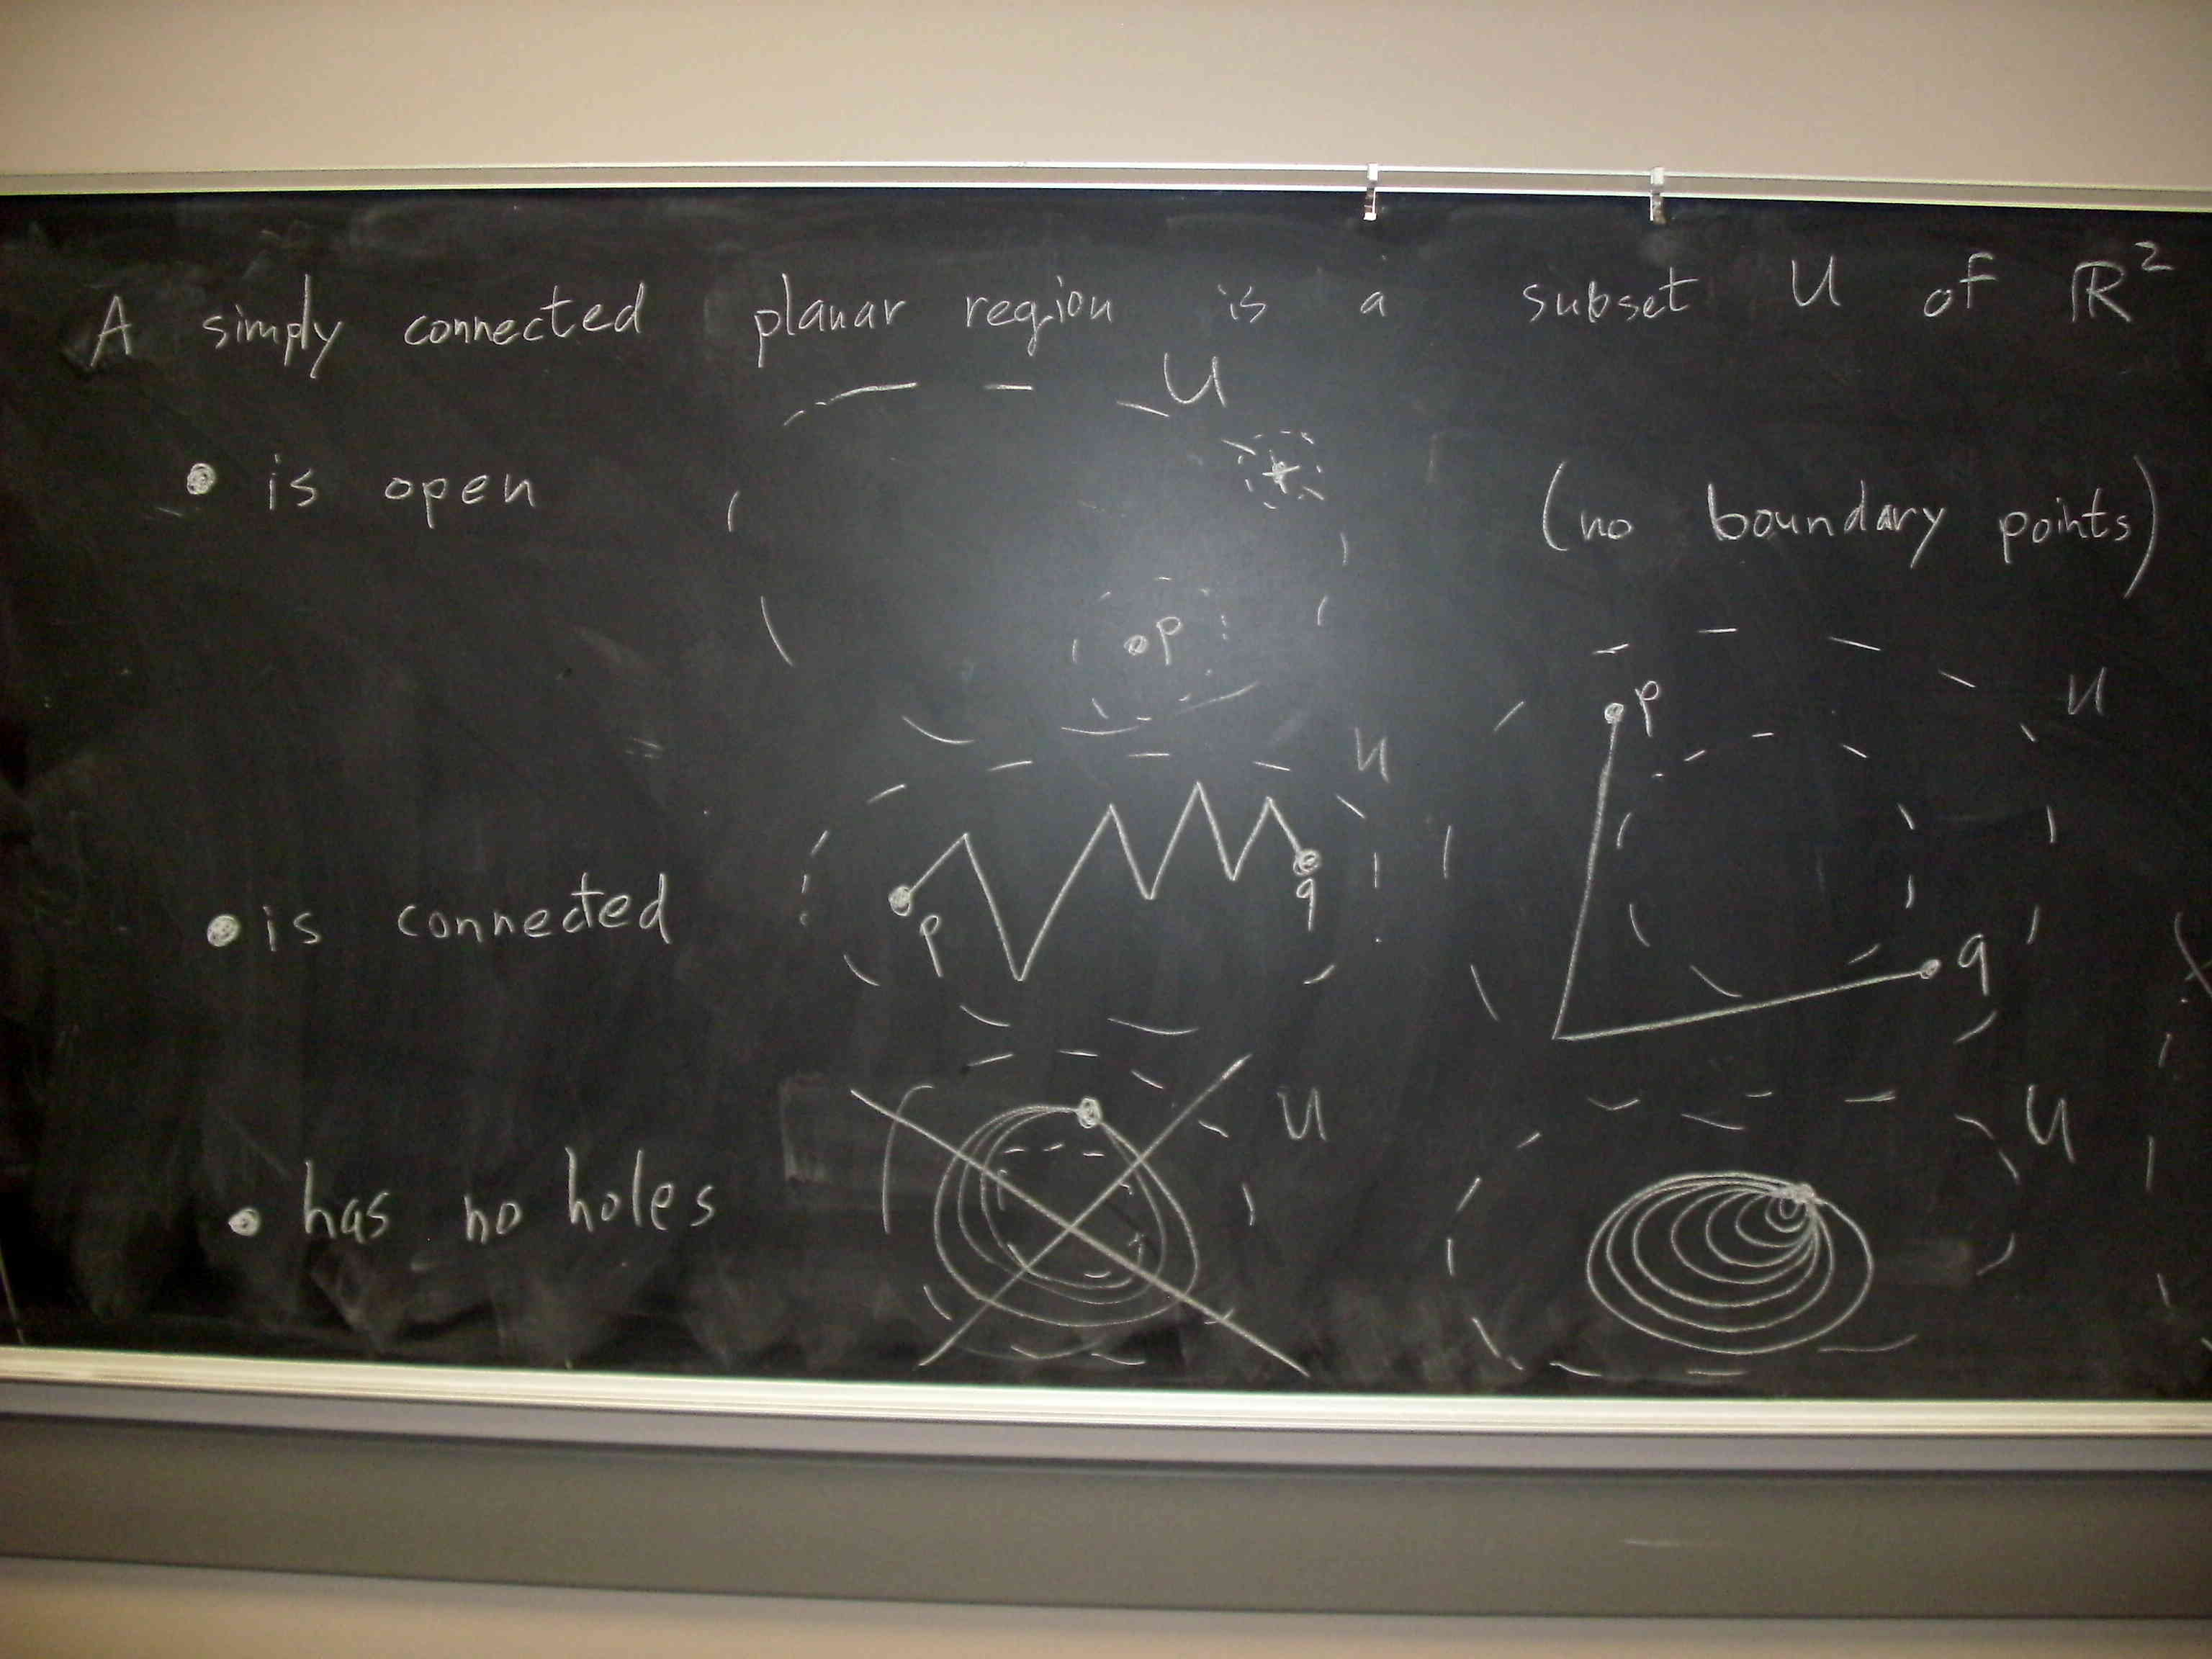 A simply connected planar region is a subset U of ℝ²
U
• is open
(no boundary points)
p
U
p
U
• is connected
p
q
q
U
U
• has no holes